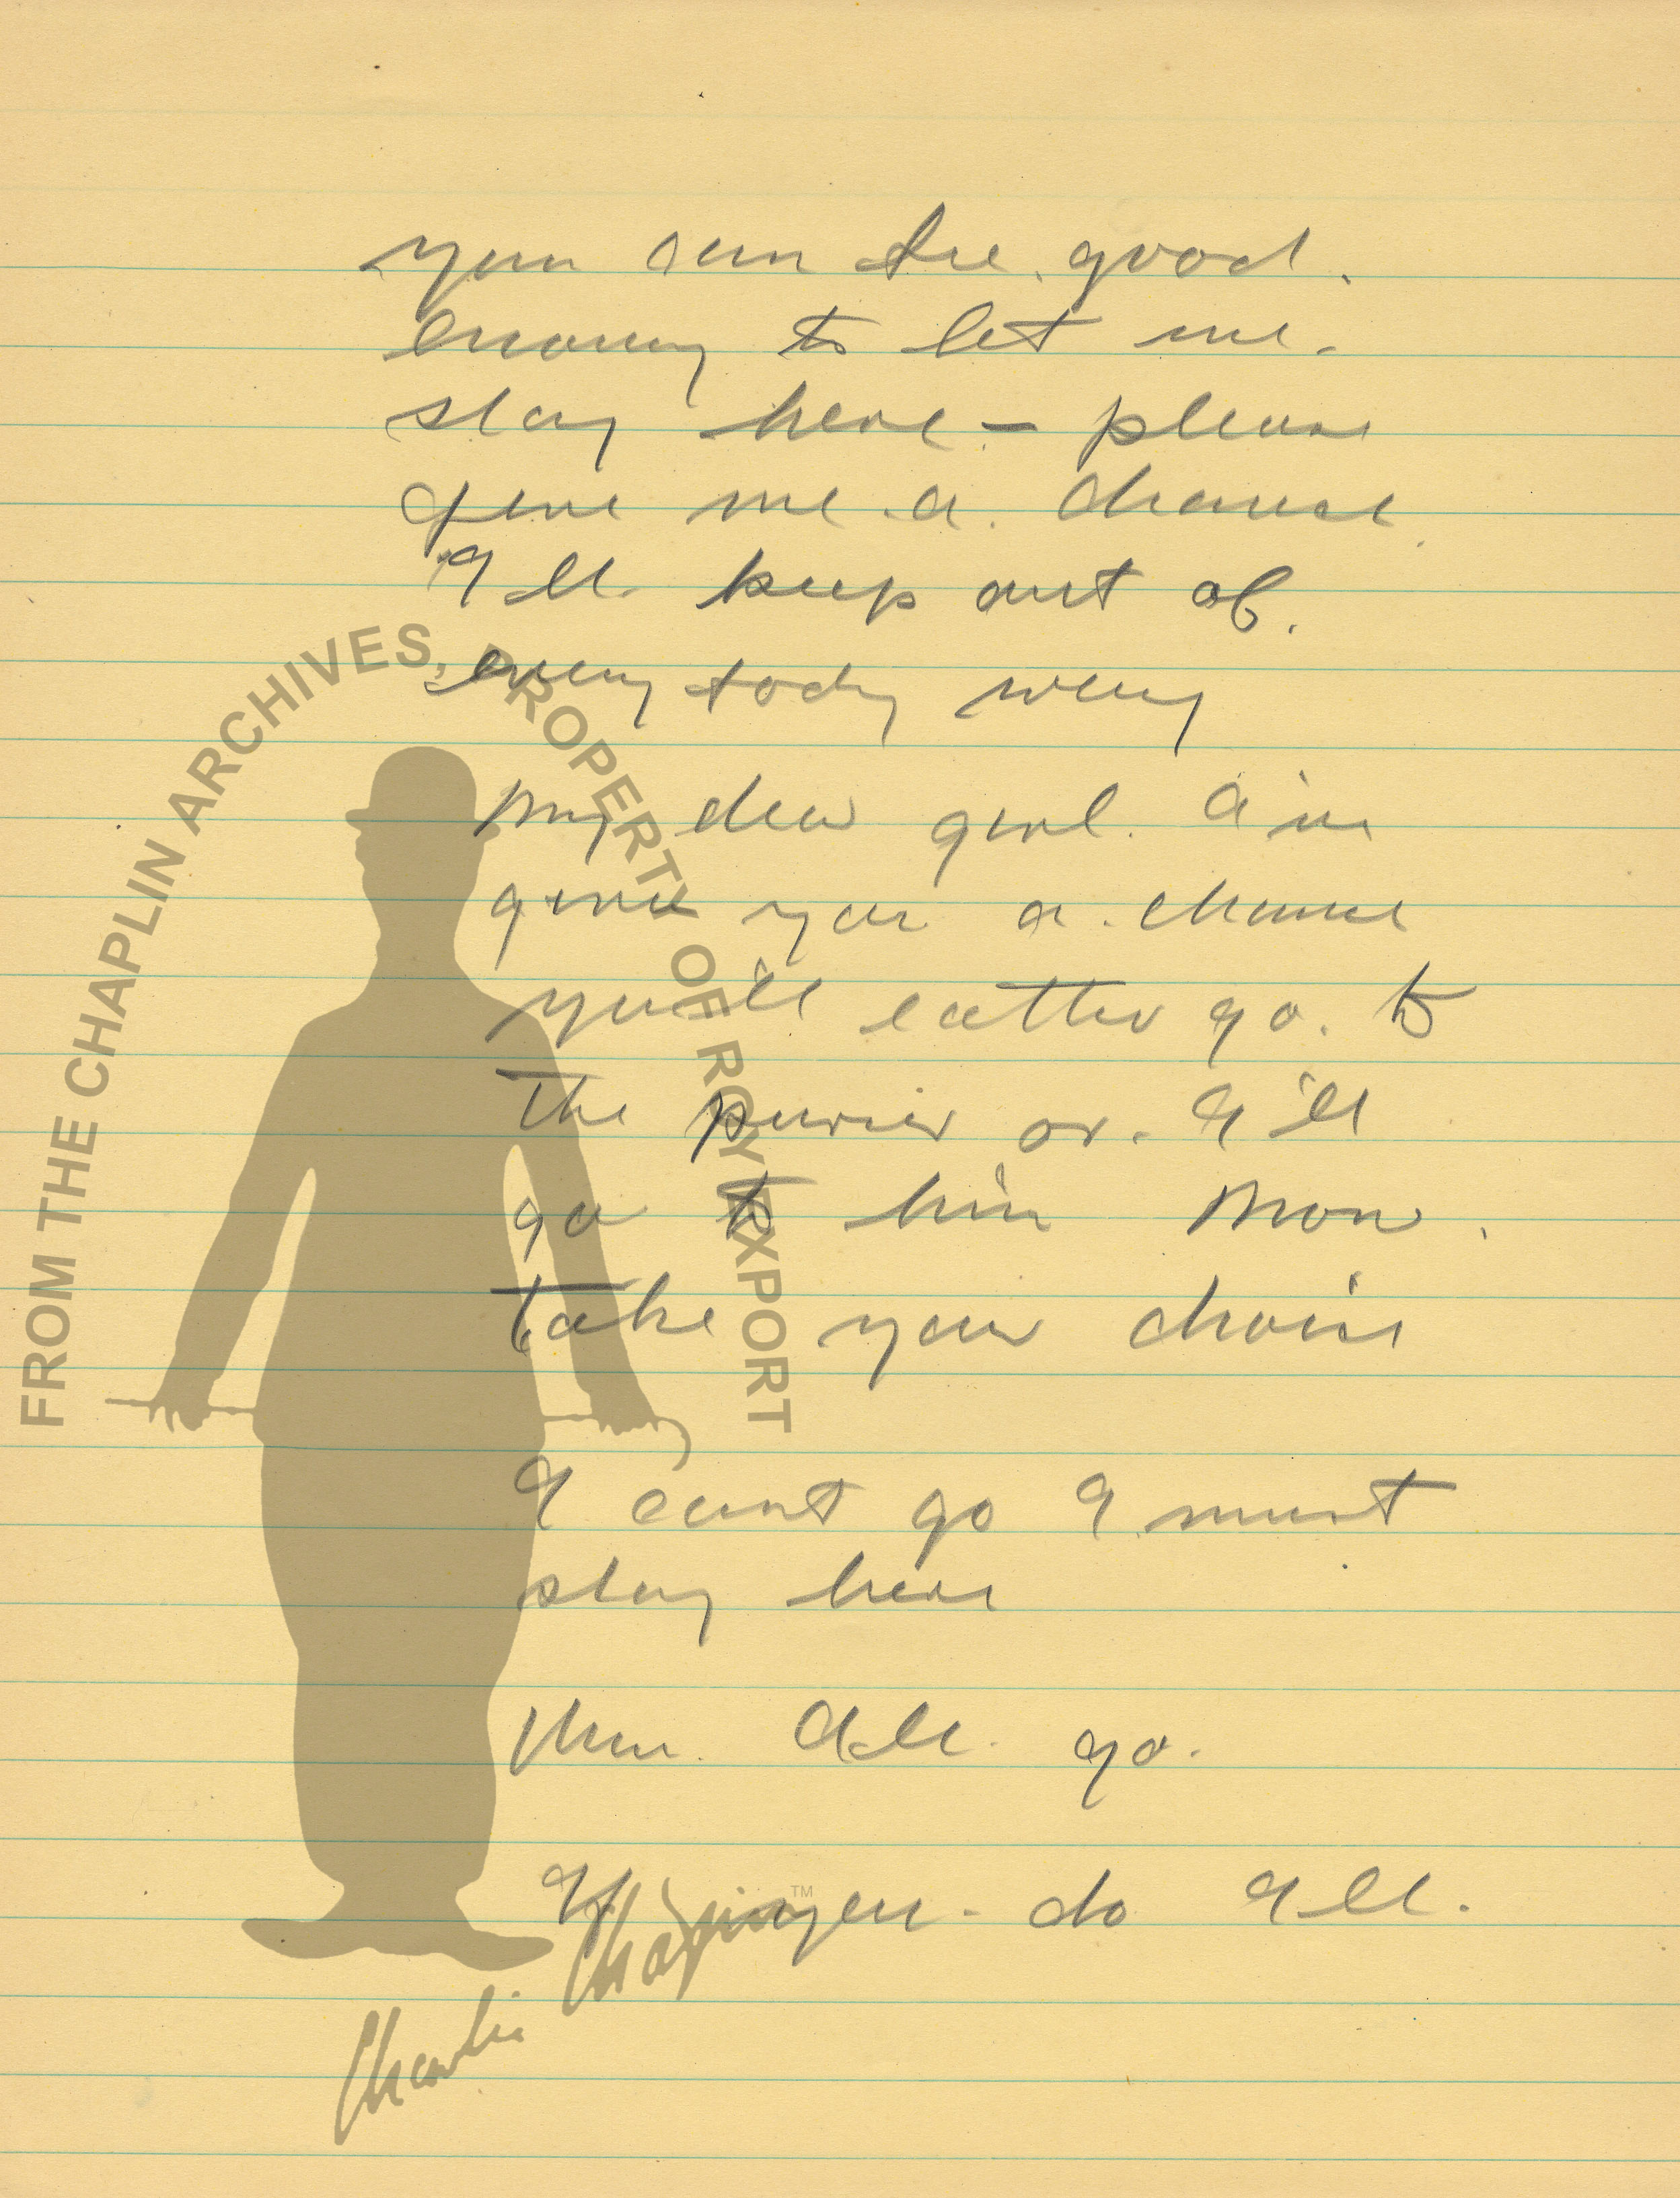 you can be good
enoug to let me.
stay here – please
give me a. chance
I ll keep out of.
every body way
My dear girl. I'm
give you a. chance
you'll eather go. to
the purser or. I'll
go to him Mow.
take your choise
I cant go I must
stay here
then I ll go.
If you - do I ll.
FROM THE CHAPLIN ARCHIVES, PROPERTY OF ROY EXPORT
Charlie Chaplin
TM